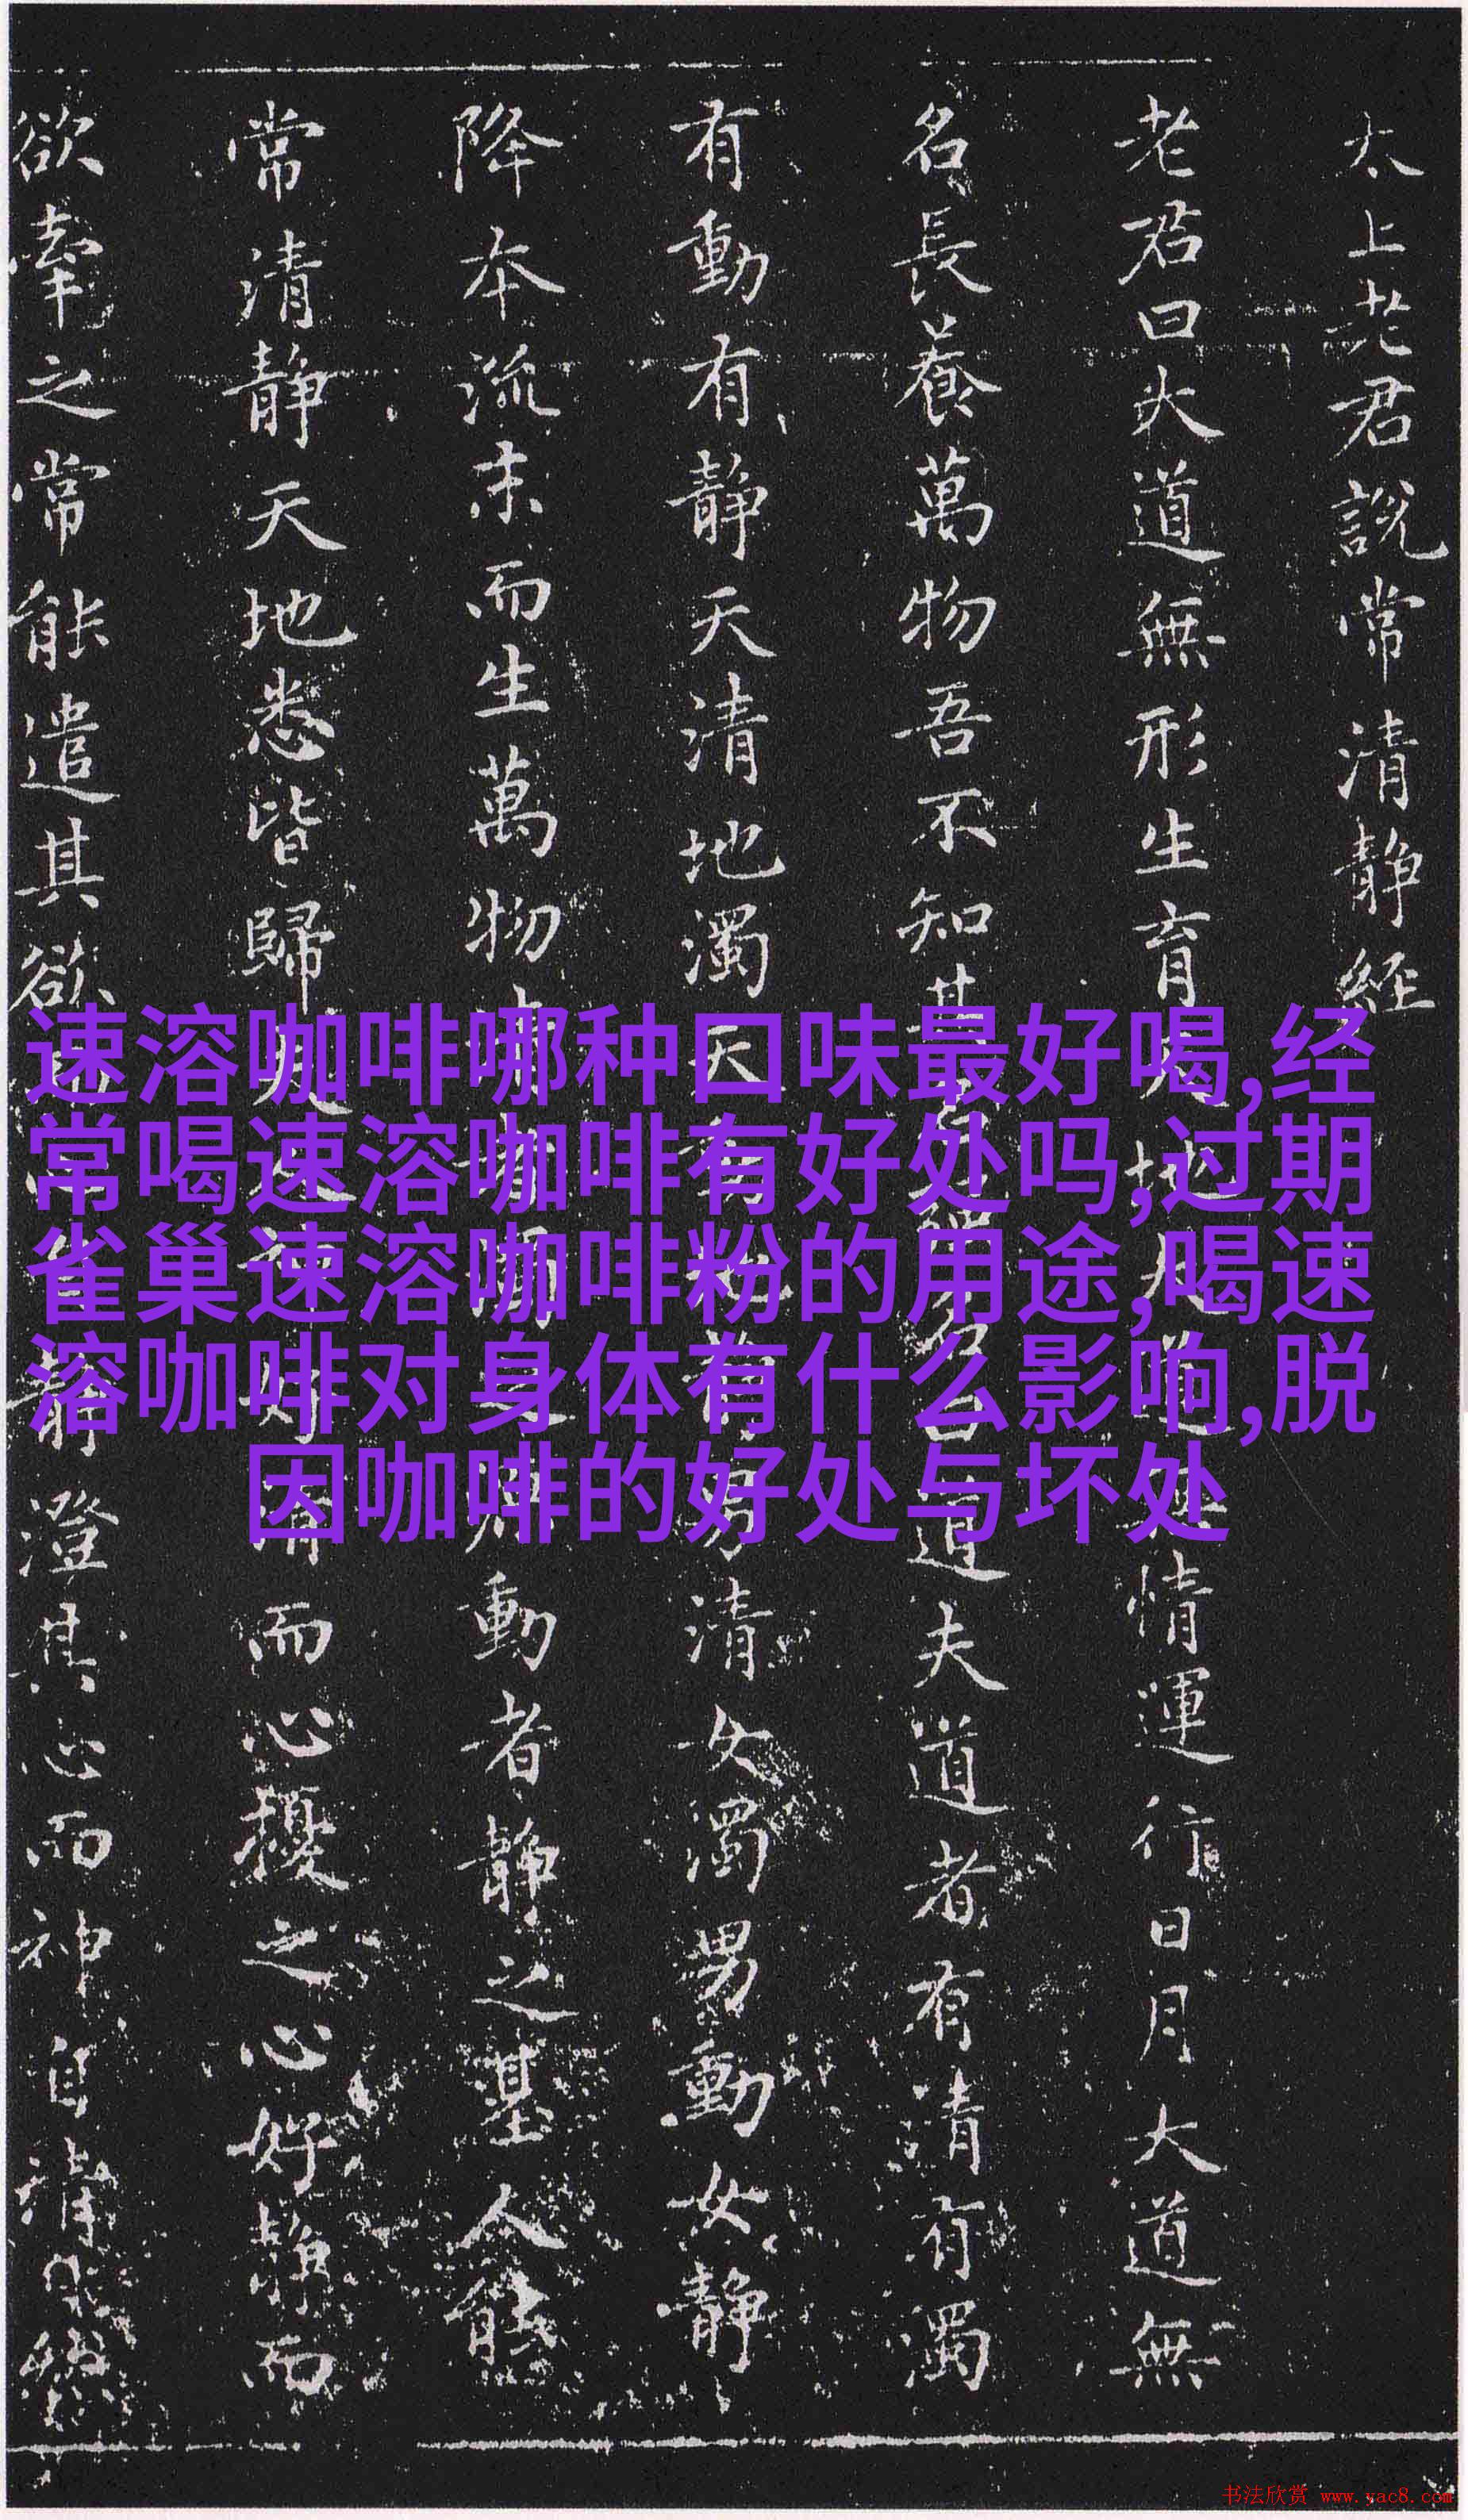 太上老君説常清静經
老君曰大道無形生育地道情運行日月大道無
名長養萬物吾不知其名曰道夫道者有清有濁
有動有静天清地濁天男清女濁男動女静
降本流末而生萬物動者静之基人能
常清静天地悉皆歸夫神好清而心擾之心好静而
欲牽之常能遣其欲静澄其心而神自清
速溶咖啡哪种口味最好喝,经
常喝速溶咖啡有好处吗,过期
雀巢速溶咖啡粉的用途,喝速
溶咖啡对身体有什么影响,脱
因咖啡的好处与坏处
书法欣赏 www.yac8.com